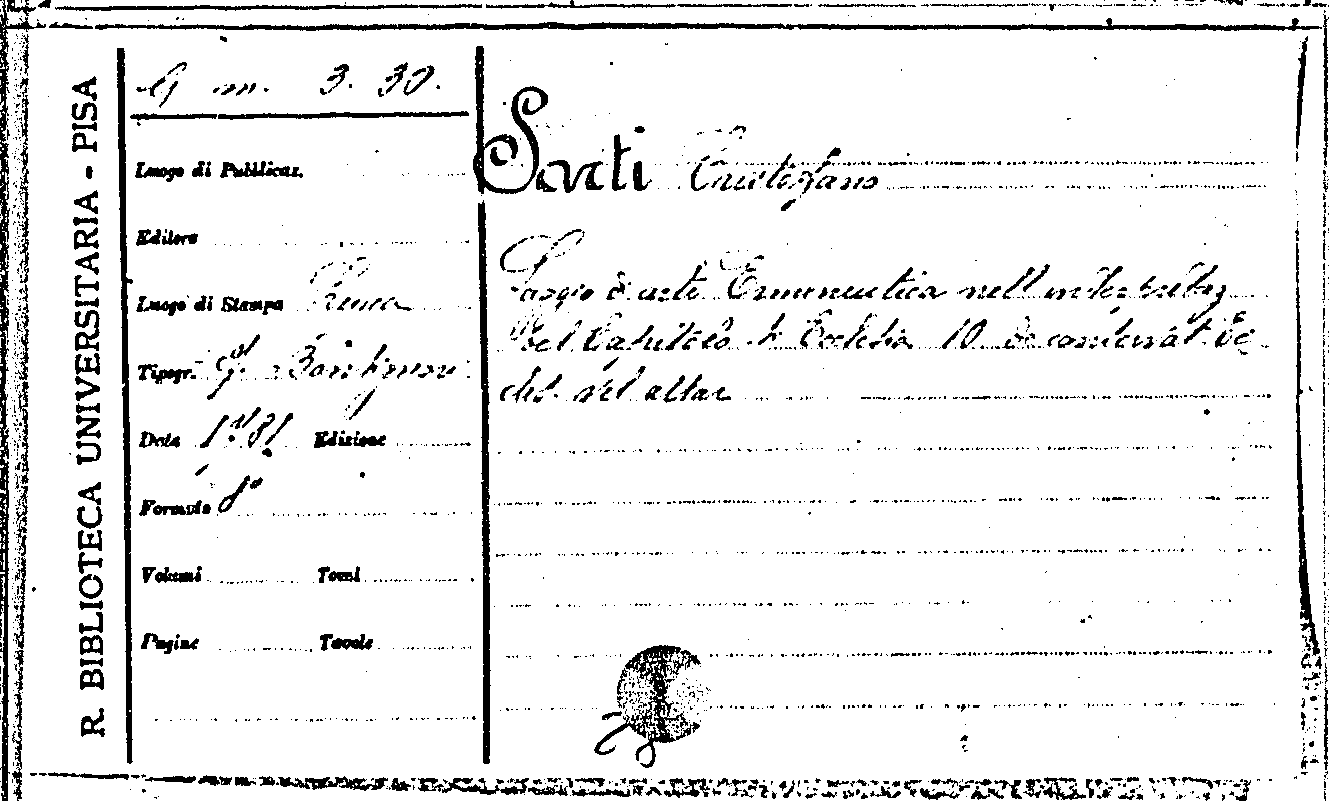 R. BIBLIOTECA UNIVERSITARIA - PISA
G m. 3. 30.
Luogo di Pubblicaz.
Editore
Luogo di Stampa Lucca
Tipogr. G. Bonsignori
Data 1781 Edizione
Formato 8°
Volumi Tomi
Pagine Tavole
Sarti Cristofano
Saggio d'arte Ermeneutica nell'interpretaz
del Capitolo Ecclesia 10 De consecrat. Ec
cles. vel altar